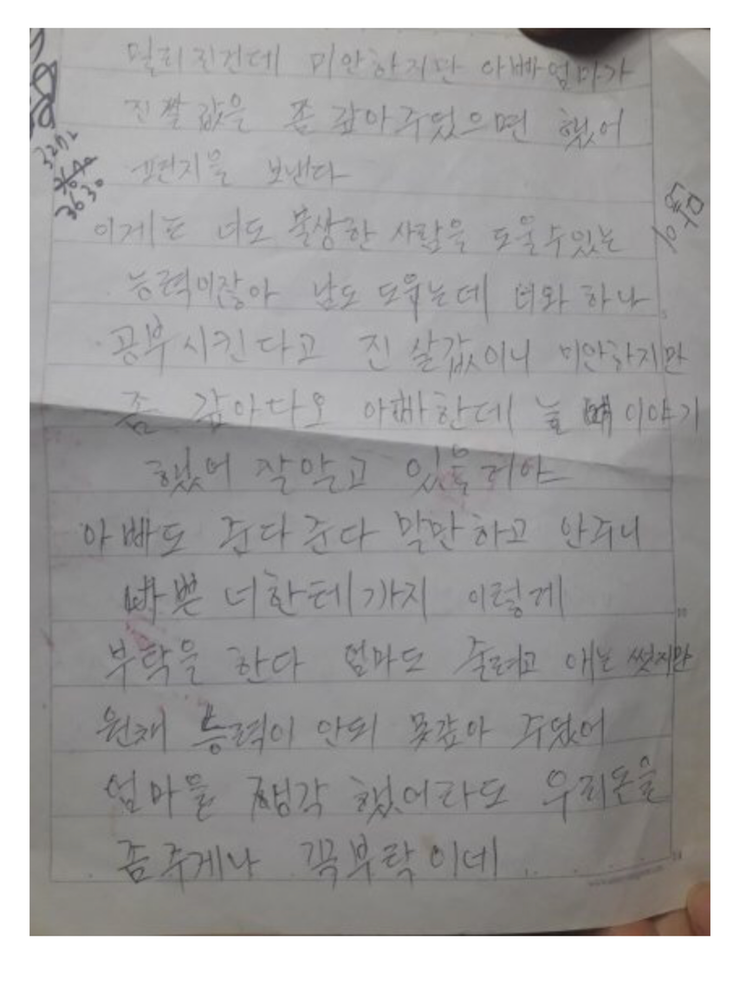 멀리진건데 미안하지만 아빠엄마가
진 쌀값을 좀 갚아주었으면 했어
편지을 보낸다
이게는 너도 불상한 사람을 도울수있는
능력이잖아 남도 도우는데 너와 하나
공부시킨다고 진 살값이니 미안하지만
좀 갚아다오 아빠한데 늘 이야기
했어 잘알고 있을거야
아빠도 준다준다 말만하고 안주니
바쁜 너한테까지 이렇게
부탁을 한다 엄마도 줄려고 애는 썻지만
원채 능력이 안되 못갚아 주었어
엄마을 생각 했어라도 우리돈을
좀주게나 꼭부탁이네
3630